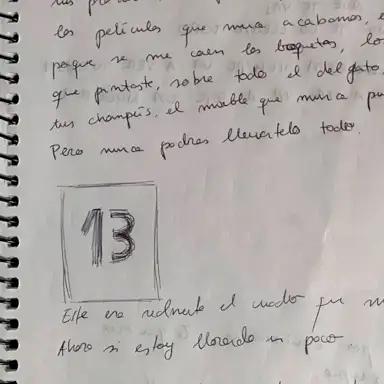 tus
las películas que nunca acabamos,
porque se me caen las boquetas, lo
que pintaste, sobre todo el del gato,
tus champús, el mueble que nunca pu
Pero nunca podras llevartelo todo.
13
Este era realmente el cuadro que m
Ahora si estoy llorando un poco